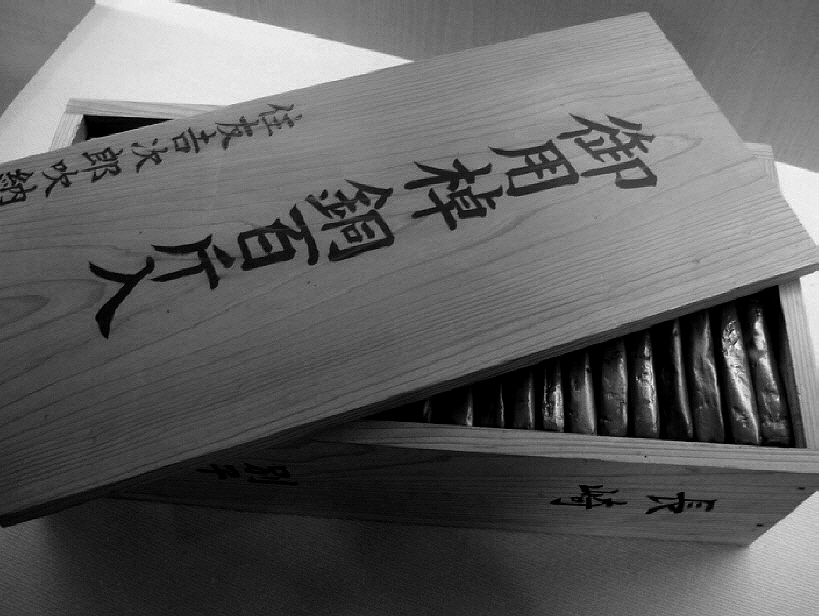 御用棹銅百斤入
住友吉次郎吹納
長崎
別子